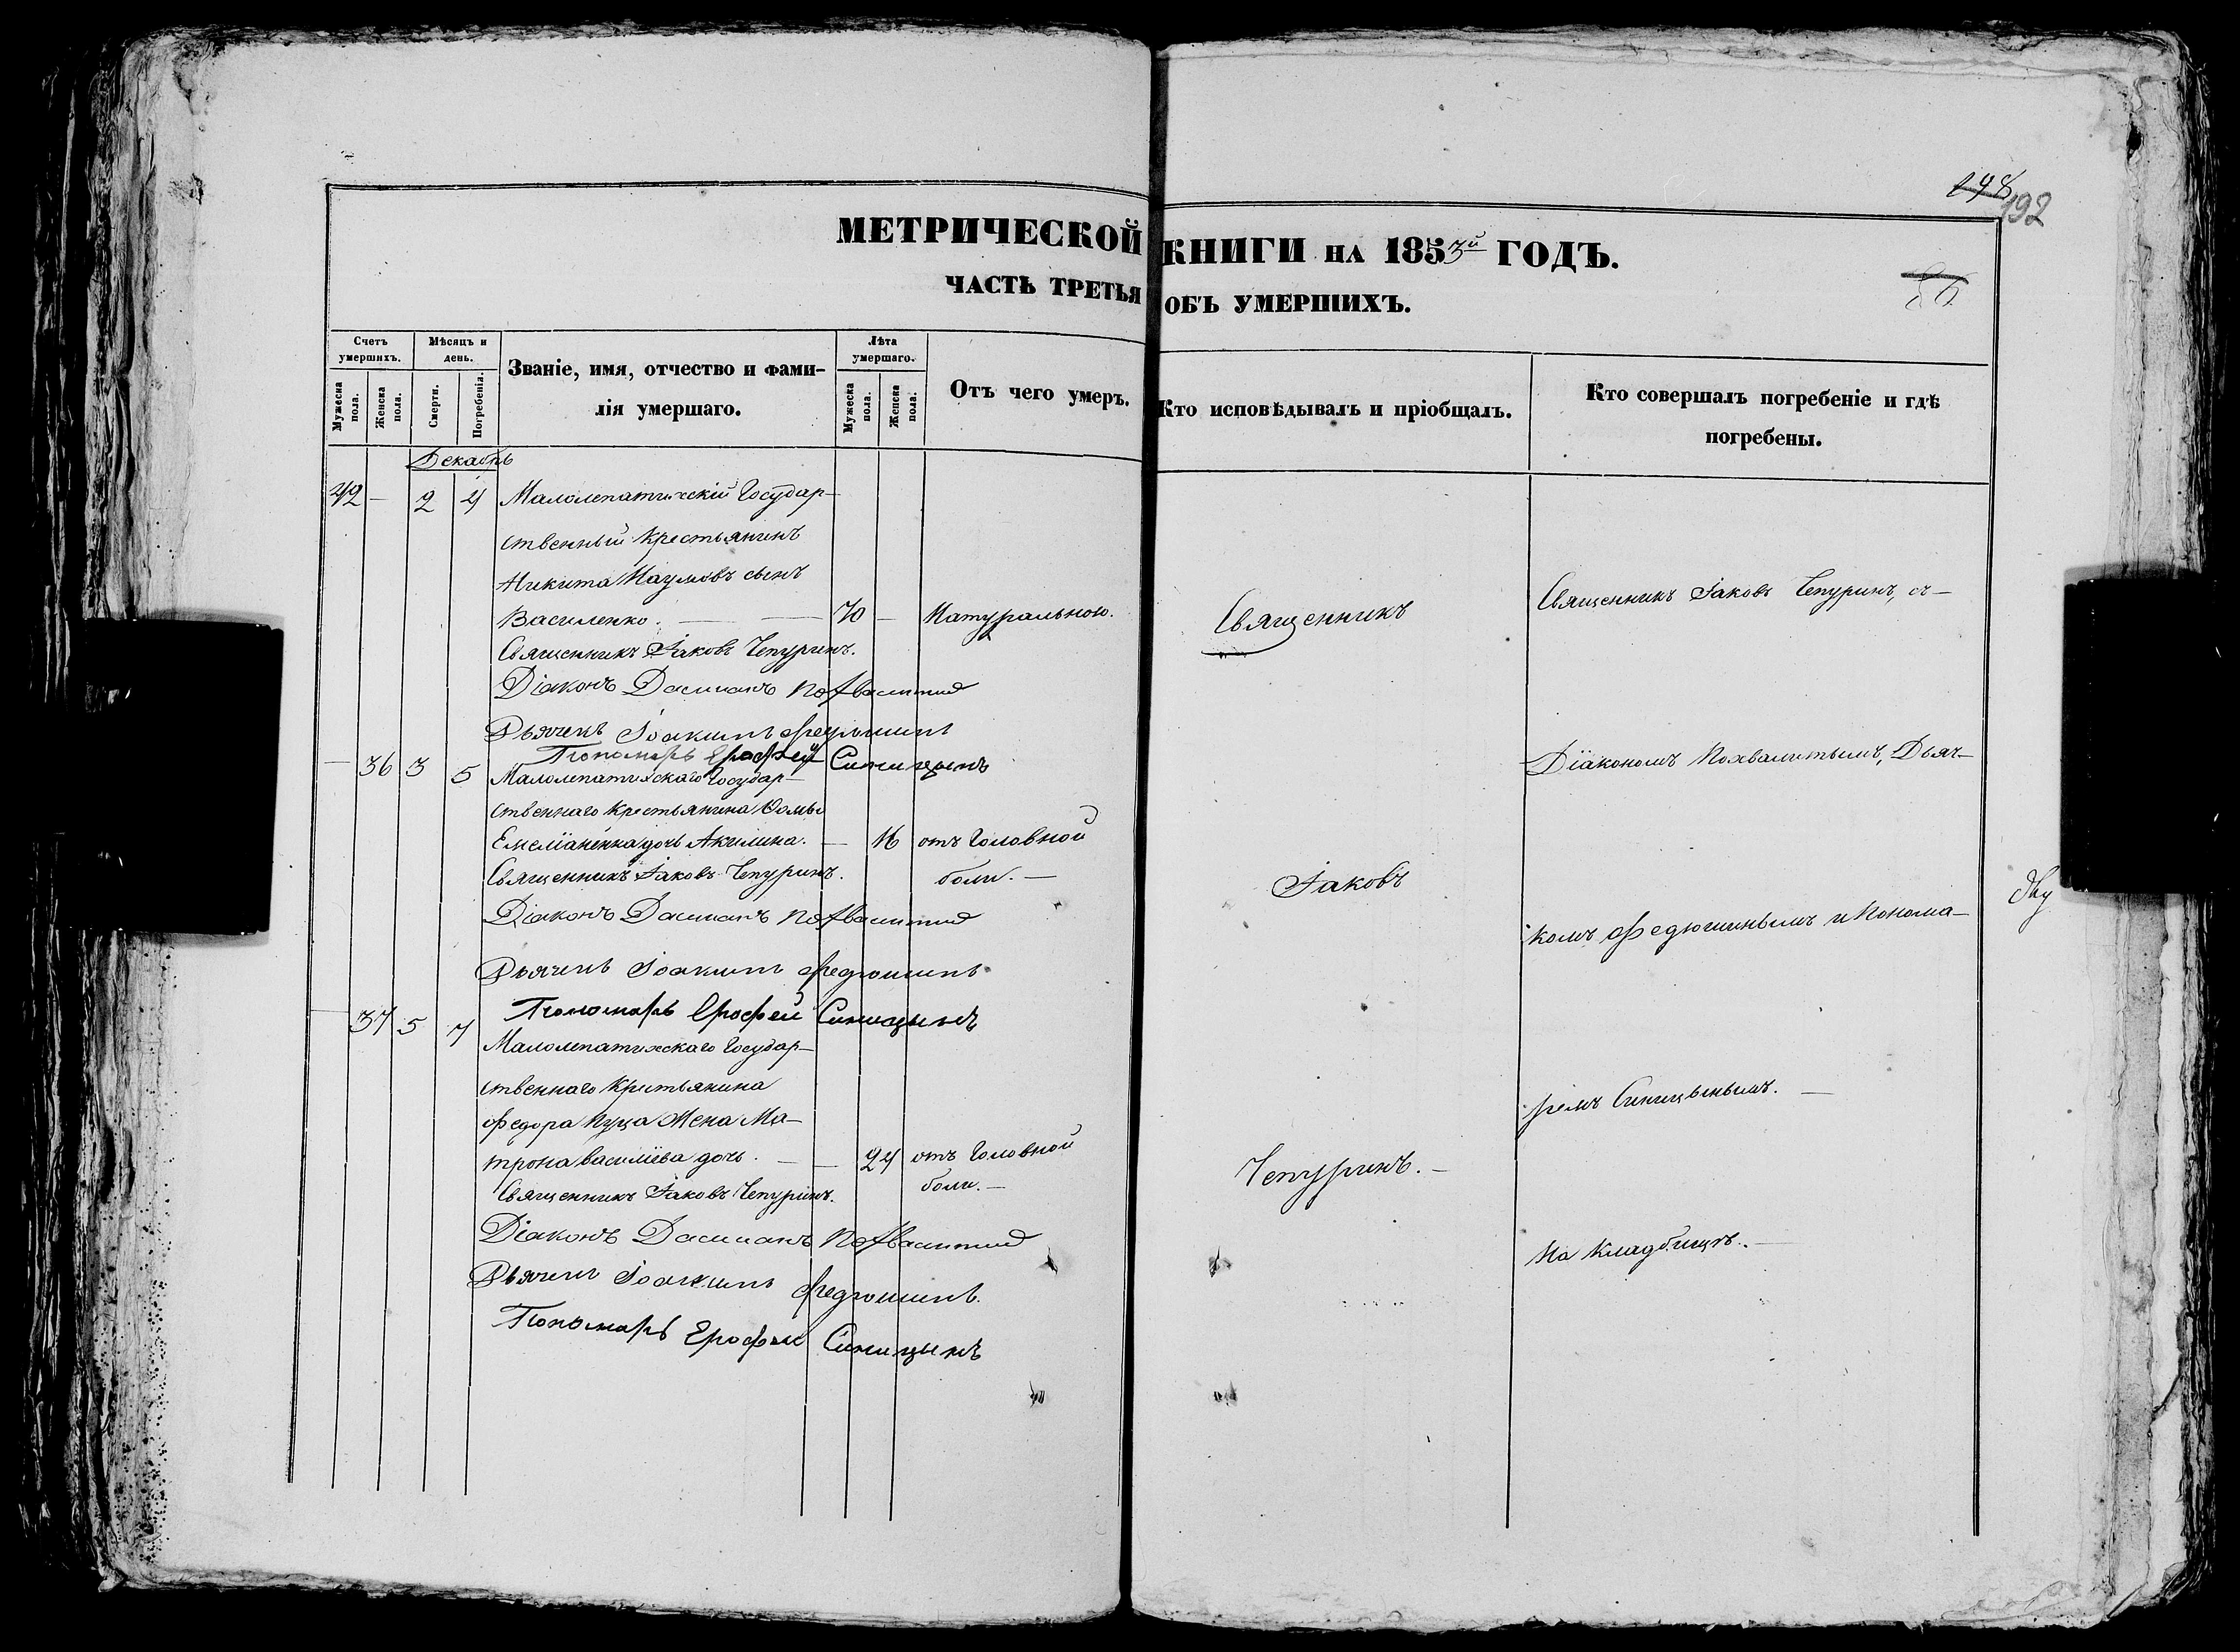 198
192
МЕТРИЧЕСКОЙ КНИГИ НА 1853й ГОДЪ.
86
ЧАСТЬ ТРЕТЬЯ ОБЪ УМЕРШИХЪ.
Счетъ умершихъ.
Мужеска пола.
Женска пола.
Мѣсяцъ и день.
Смерти.
Погребенія.
Званіе, имя, отчество и фами-
лія умершаго.
Лѣта умершаго.
Мужеска пола.
Женска пола.
Отъ чего умеръ.
Кто исповѣдывалъ и пріобщалъ.
Кто совершалъ погребеніе и гдѣ
погребены.
Декабрь
42 — 2 4 Малолепатихскій Государ-
ственный Крестьянинъ
Никита Наумовъ сынъ
Василенко. — 70 — Натуральною.
Священникъ Іаковъ Чепуринъ.
Діаконъ Дамианъ Похвалитый
Дьячекъ Іоакимъ Федюшинъ
Пономарь Ерофей Синицынъ
— 36 3 5 Малолепатихскаго Государ-
ственнаго Крестьянина Ѳомы
Емеліаненка дочь Акилина. — 16 отъ Головной
боли. —
Священникъ Іаковъ Чепуринъ.
Діаконъ Дамианъ Похвалитый
Дьячекъ Іоакимъ Федюшинъ
Пономарь Ерофей Синицынъ
— 37 5 7 Малолепатихскаго Государ-
ственнаго Крестьянина
Федора Куца Жена Ма-
трона Василіева дочь. — — 24 отъ Головной
боли. —
Священникъ Іаковъ Чепуринъ.
Діаконъ Дамианъ Похвалитый
Дьячекъ Іоакимъ Федюшинъ.
Пономарь Ерофей Синицынъ
Священникъ
Іаковъ
Чепуринъ. —
Священникъ Іаковъ Чепуринъ, съ —
Діакономъ Похвалитымъ, Дьяч-
комъ Федюшинымъ и Понома-
ремъ Синицынымъ. —
На Кладбищѣ. —